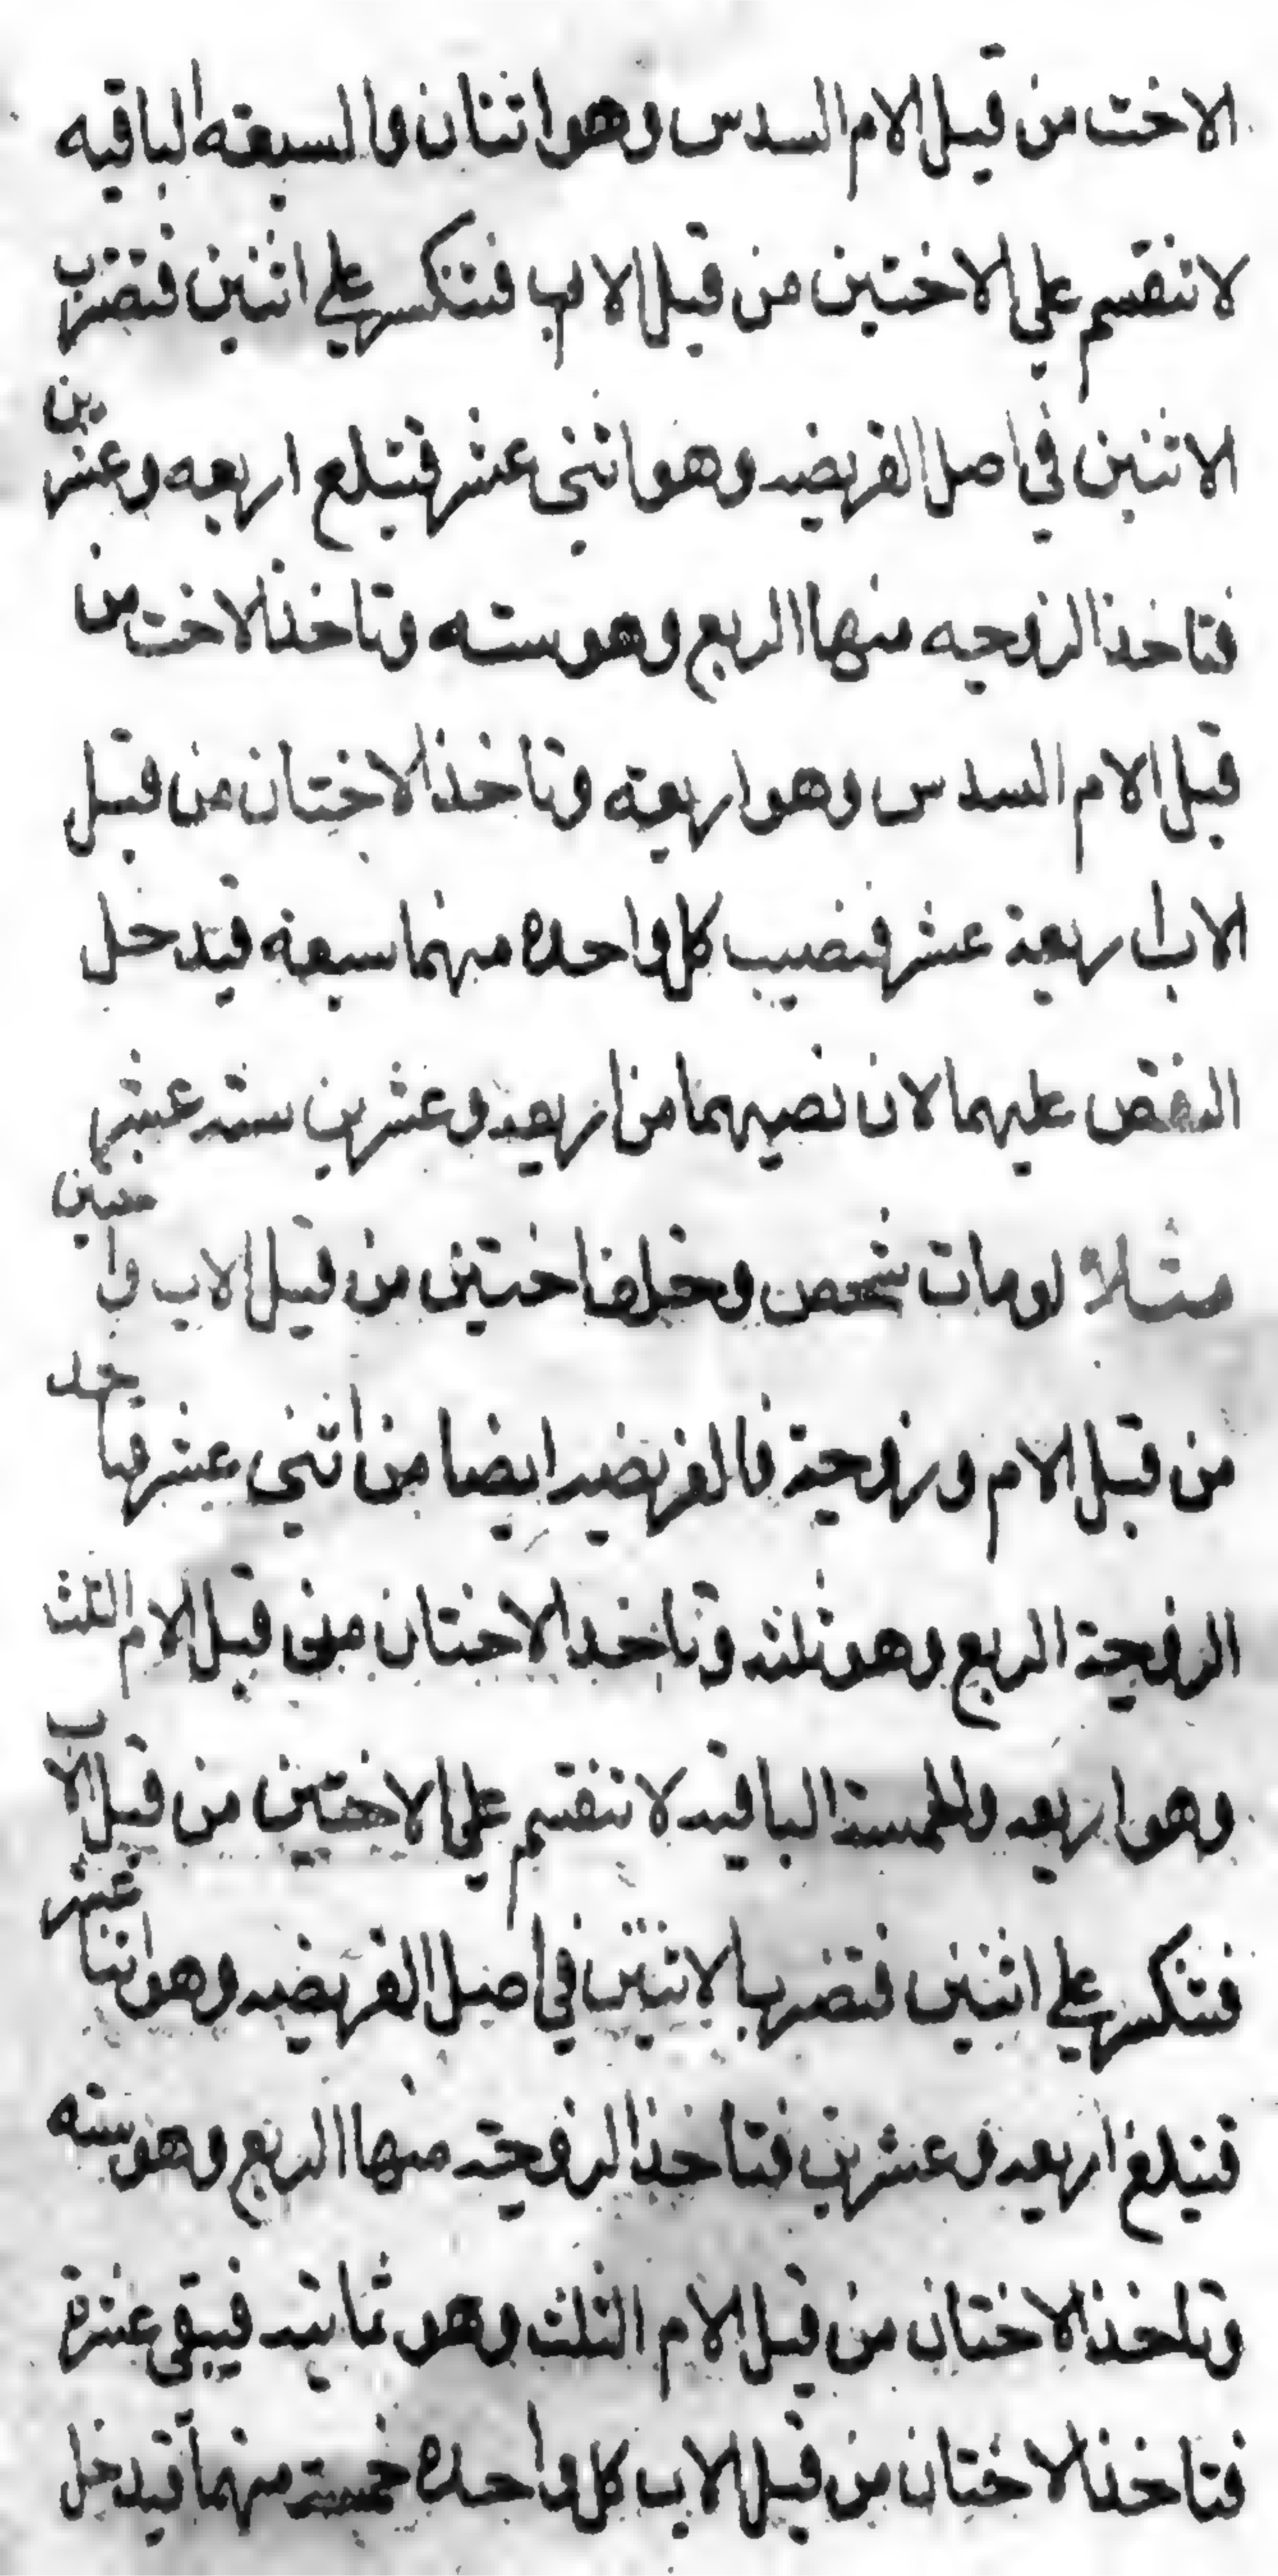 الاخت من قبل الام السدس وهو اثنان والسبعة الباقيه
لا تنقسم علي الاختين من قبل الاب فتنكسر علي اثنين فتضرب
الاثنين في اصل الفريضه وهو اثني عشر فتبلغ اربعه وعشرين
فتاخذ الزوجه منها الربع وهو سته وتاخذ الاخت من
قبل الام السدس وهو اربعة وتاخذ الاختان من قبل
الاب اربعة عشر فنصيب كل واحده منهما سبعة فيدخل
النقص عليهما لان نصيبهما من اربعه وعشرين ستة عشر
مثلا لو مات شخص وخلف اختين من قبل الاب واختين
من قبل الام وزوجة فالفريضه ايضا من اثني عشر فتاخذ
الزوجة الربع وهو ثلثه وتاخذ الاختان من قبل الام الثلث
وهو اربعه والخمسة الباقيه لا تنقسم علي الاختين من قبل الاب
فتنكسر علي اثنين فتضرب الاثنين في اصل الفريضه وهو اثنا عشر
فتبلغ اربعه وعشرين فتاخذ الزوجة منها الربع وهو سته
وتاخذ الاختان من قبل الام الثلث وهو ثمانيه فيبقى عشرة
فتاخذ الاختان من قبل الاب كل واحدة خمسة منهما فيدخل